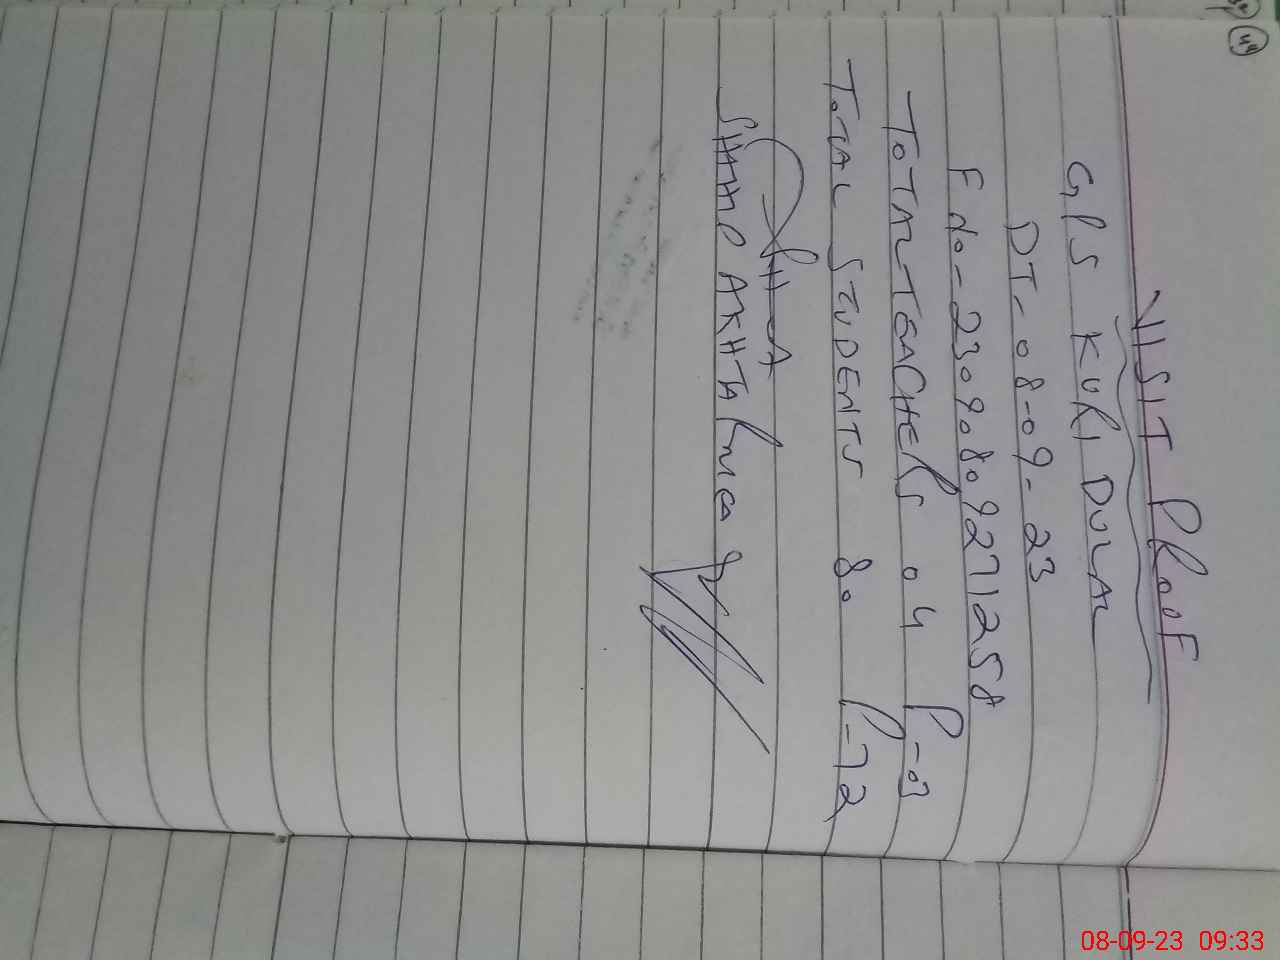 44
VISIT PROOF
GPS KURI DULAL
DT-08-09-23
F No-23090809271258
TOTAL TEACHERS 04 P-03
TOTAL STUDENTS 80 P-72
08-09-23 09:33